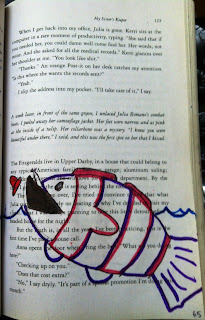 My Sister's Keeper 123
When I get back into my office, Julia is gone. Kerri sits at the
computer in a rare moment of productivity, typing. "She said that if
you needed her, you could damn well come find her. Her words, not
mine. And she asked for all the medical records." Kerri glances over
her shoulder at me. "You look like shit."
"Thanks." An orange Post-it on her desk catches my attention.
"Is this where she wants the records sent?"
"Yeah."
I slip the address into my pocket. "I'll take care of it," I say.
A week later, in front of the same grave, I unlaced Julia Romano's combat
boots. I peeled away her camouflage jacket. Her feet were narrow and as pink
as the inside of a tulip. Her collarbone was a mystery. "I knew you were
beautiful under there," I said, and this was the first spot on her that I kissed.
The Fitzgeralds live in Upper Darby, in a house that could belong to
any typical American family. Two-car garage; aluminum siding;
Totfinder
department. By the
the
setting behind
what
Julia
why I've
that my
planning to
this
headed home for the night.
But the truth is,
this is the
first time I've
house call.
Anna opens
door when
ring the bell. "What are you doing
here?"
"Checking up on you."
"Does that cost extra?"
"No," I say dryly. "It's part of a special promotion I'm doing this
month."
65